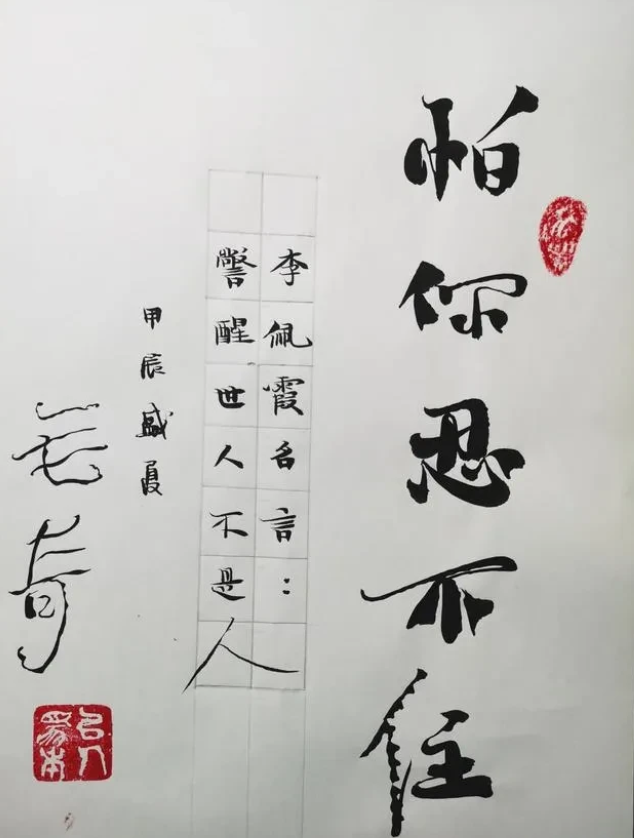 怕你忍不住
李佩霞名言：
警醒世人不是人
甲辰盛夏